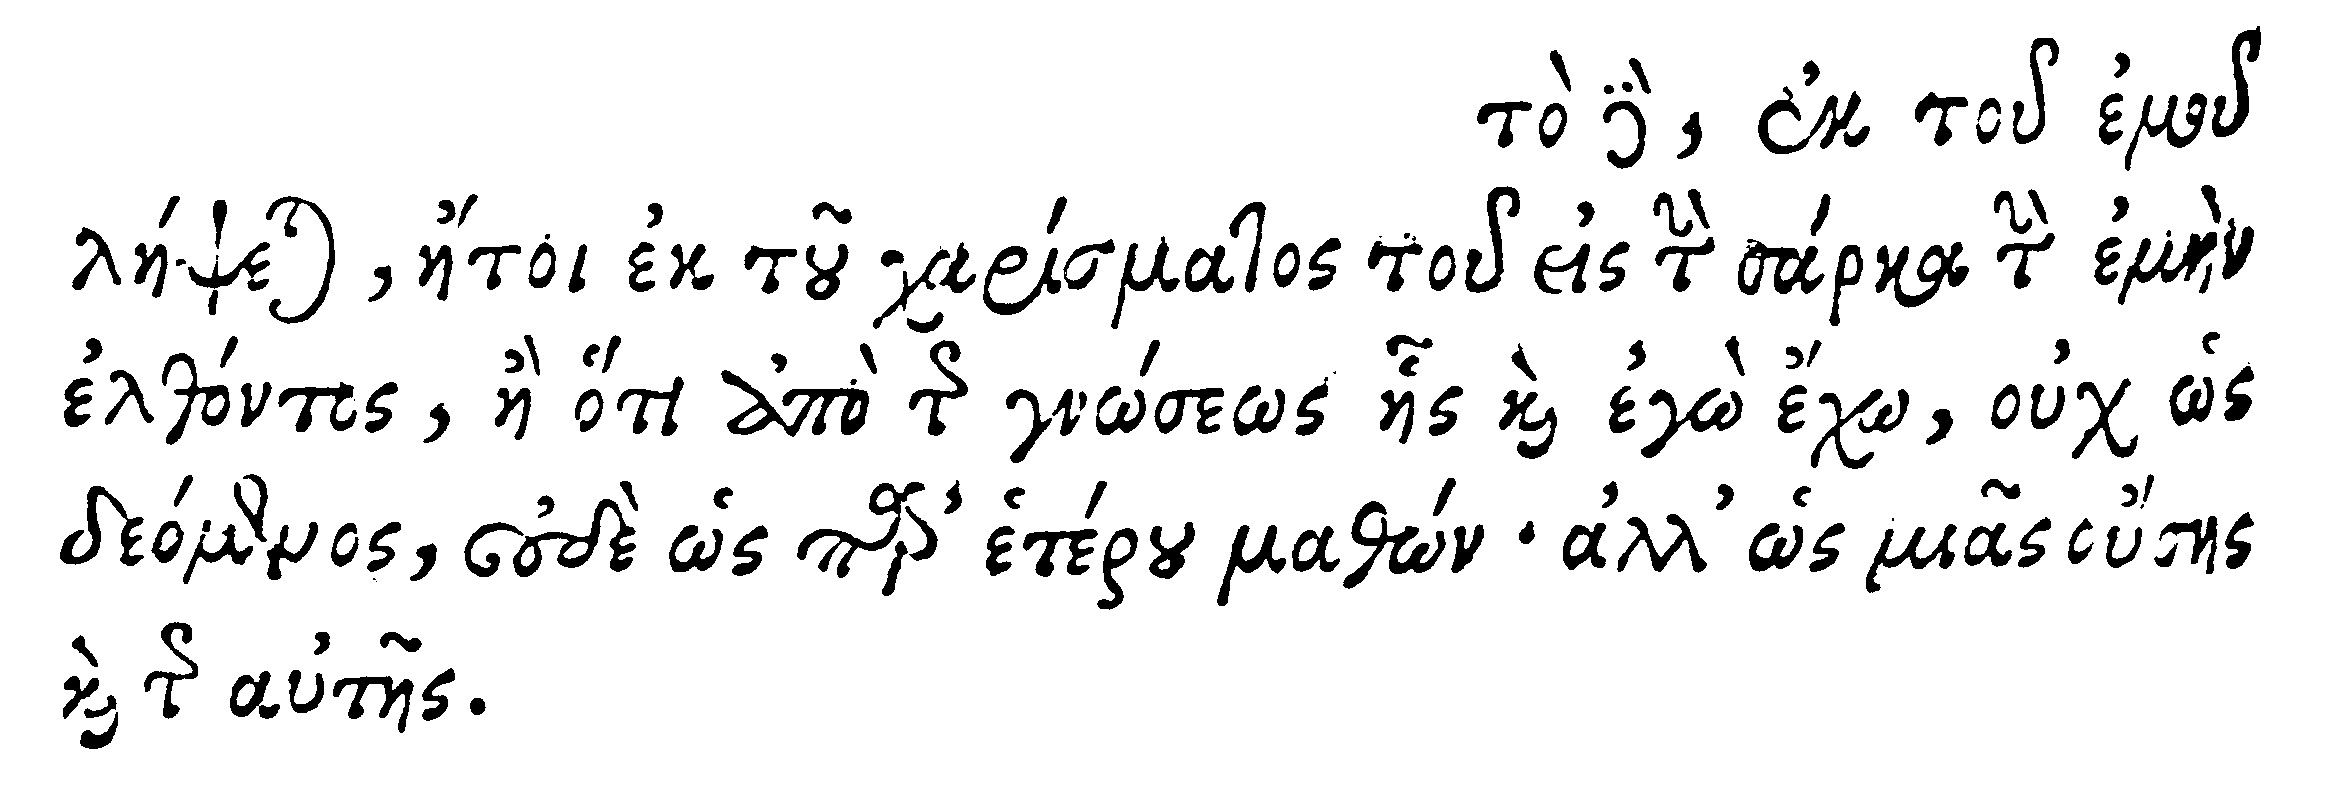 τὸ δὲ, ἐκ τοῦ ἐμοῦ
λήψεται, ἤτοι ἐκ τοῦ χαρίσματος τοῦ εἰς τὴν σάρκα τὴν ἐμὴν
ἐλθόντος, ἢ ὅτι ἀπὸ τῆς γνώσεως ἧς καὶ ἐγὼ ἔχω, οὐχ ὡς
δεόμενος, οὐδὲ ὡς παρ’ ἑτέρου μαθών · ἀλλ’ ὡς μιᾶς οὔσης
καὶ τῆς αὐτῆς.